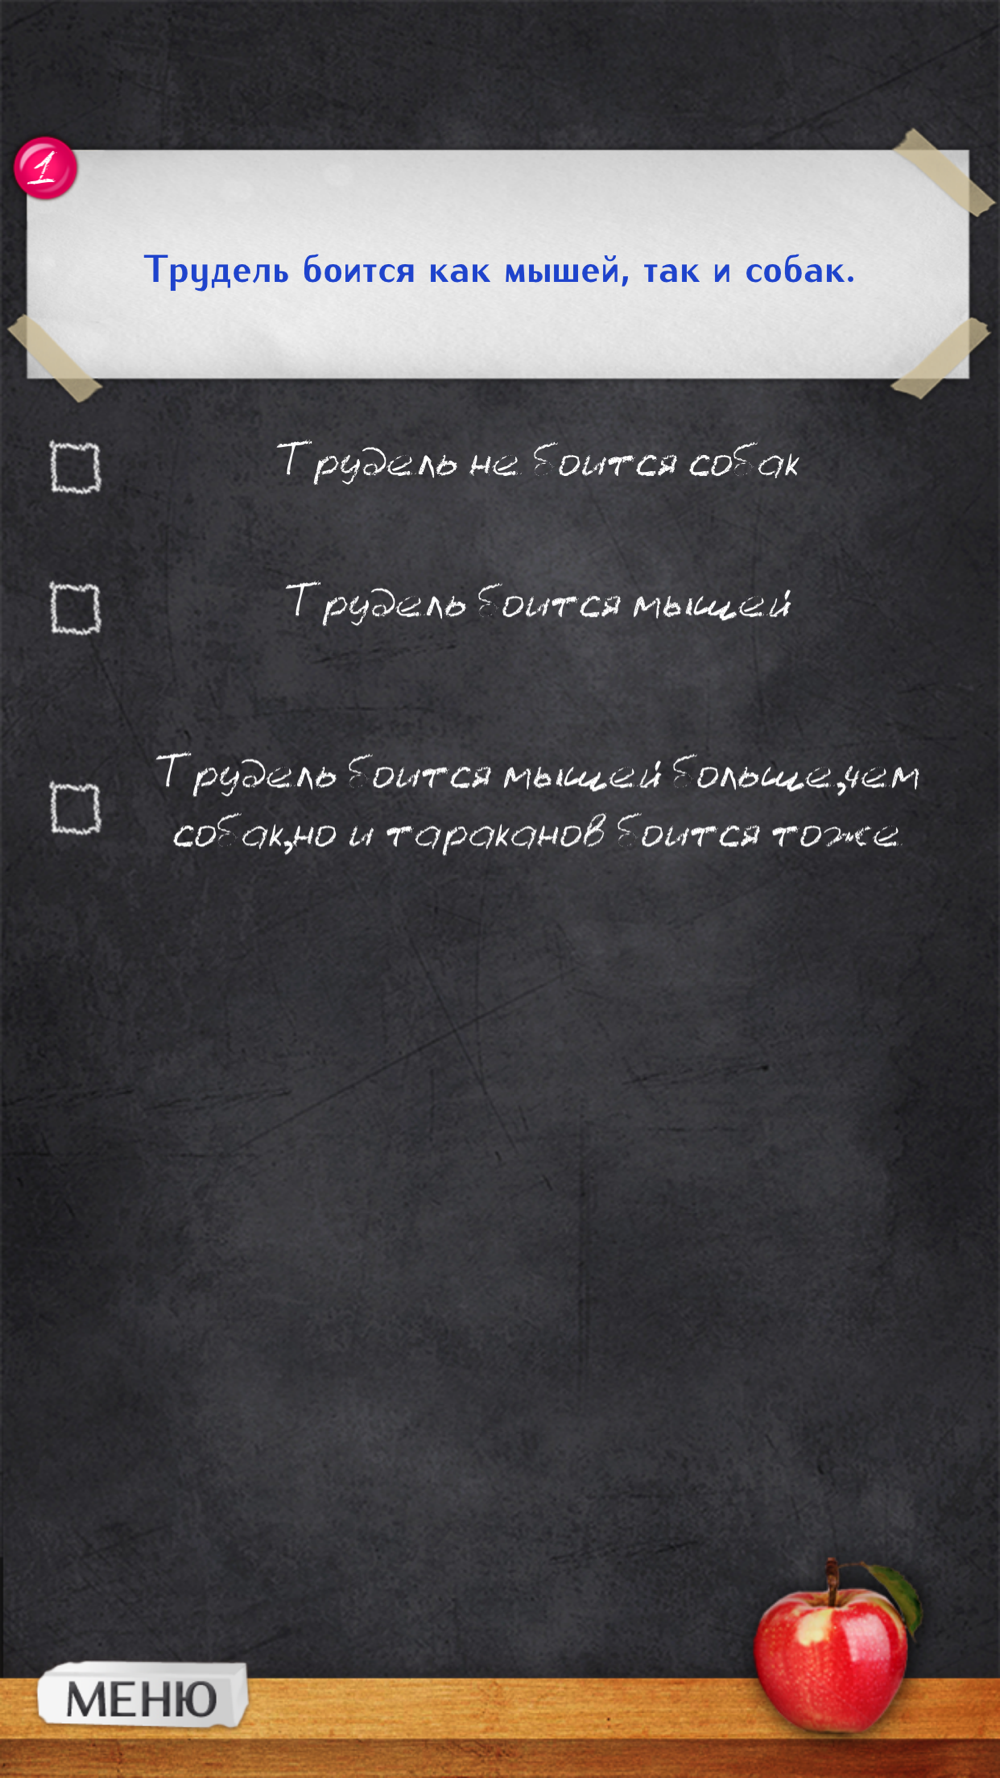 1
Трудель боится как мышей, так и собак.
Трудель не боится собак
Трудель боится мышей
Трудель боится мышей больше,чем
собак,но и тараканов боится тоже
МЕНЮ